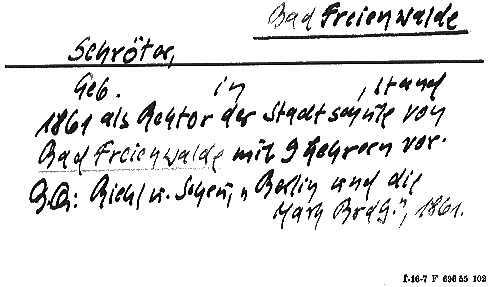 Bad Freienwalde
Schröter,
Geb. in , stand
1861 als Rektor der Stadtschule von
Bad Freienwalde mit 9 Lehrern vor.
B.Qu: Riehl u. Scheu, "Berlin und die
Mark Brdbg.", 1861.
f-16-7 F 696 55 102